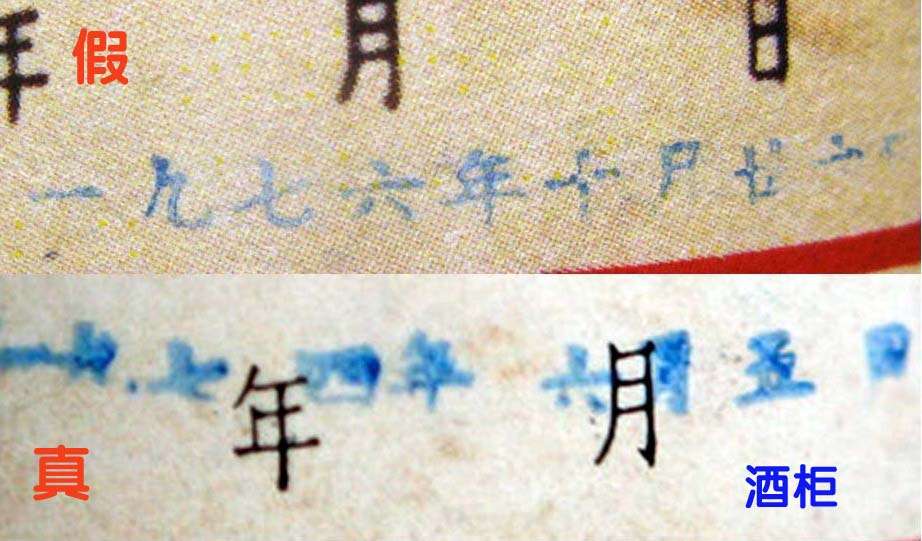 年 假 月 日
一九七六年十月廿二
一九七四年六月五日
年 月
真
酒柜